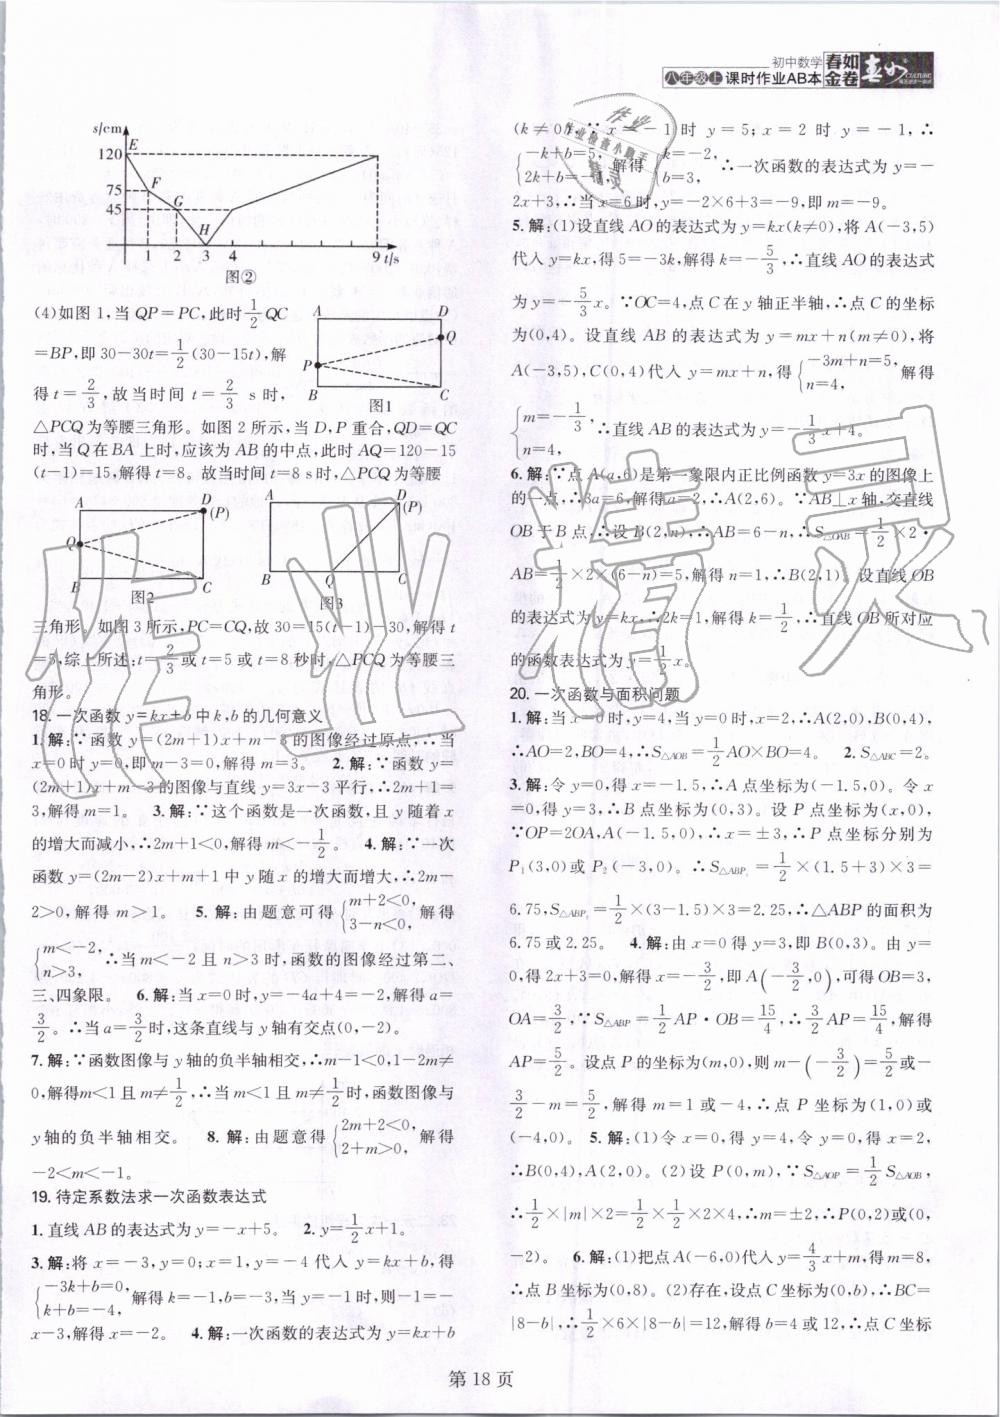 初中数学
八年级上 课时作业AB本
春如金卷
s/cm
E
120
F
75
G
45
H
1 2 3 4 9 t/s
图②
(4)如图1,当QP=PC,此时1/2QC
=BP,即30-30t=1/2(30-15t),解
得t=2/3,故当时间t=2/3 s时,
A D
Q
P
B C
图1
△PCQ为等腰三角形。如图2所示,当D,P重合,QD=QC
时,当Q在BA上时,应该为AB的中点,此时AQ=120-15
(t-1)=15,解得t=8。故当时间t=8 s时,△PCQ为等腰
A D(P)
Q
B C
图2
A D(P)
B Q C
图3
三角形。如图3所示,PC=CQ,故30=15(t-1)-30,解得t
=5,综上所述:t=2/3或t=5或t=8秒时,△PCQ为等腰三
角形。
18.一次函数y=kx+b中k,b的几何意义
1.解:∵函数y=(2m+1)x+m-3的图像经过原点,∴当
x=0时y=0,即m-3=0,解得m=3。 2.解:∵函数y=
(2m+1)x+m-3的图像与直线y=3x-3平行,∴2m+1=
3,解得m=1。 3.解:∵这个函数是一次函数,且y随着x
的增大而减小,∴2m+1<0,解得m<-1/2。 4.解:∵一次
函数y=(2m-2)x+m+1中y随x的增大而增大,∴2m-
2>0,解得m>1。 5.解:由题意可得{m+2<0, 3-n<0, 解得
{m<-2, n>3, ∴当m<-2且n>3时,函数的图像经过第二、
三、四象限。 6.解:当x=0时,y=-4a+4=-2,解得a=
3/2。∴当a=3/2时,这条直线与y轴有交点(0,-2)。
7.解:∵函数图像与y轴的负半轴相交,∴m-1<0,1-2m≠
0,解得m<1且m≠1/2,∴当m<1且m≠1/2时,函数图像与
y轴的负半轴相交。 8.解:由题意得{2m+2<0, 2+m>0, 解得
-2<m<-1。
19.待定系数法求一次函数表达式
1.直线AB的表达式为y=-x+5。 2.y=1/2x+1。
3.解:将x=-3,y=0;x=1,y=-4代入y=kx+b,得
{-3k+b=0, k+b=-4, 解得k=-1,b=-3,当y=-1时,则-1=-
x-3,解得x=-2。 4.解:一次函数的表达式为y=kx+b
(k≠0),∵x=-1时y=5;x=2时y=-1,∴
{-k+b=5, 2k+b=-1, 解得{k=-2, b=3, ∴一次函数的表达式为y=-
2x+3,∴当x=6时,y=-2×6+3=-9,即m=-9。
5.解:(1)设直线AO的表达式为y=kx(k≠0),将A(-3,5)
代入y=kx,得5=-3k,解得k=-5/3,∴直线AO的表达式
为y=-5/3x。∵OC=4,点C在y轴正半轴,∴点C的坐标
为(0,4)。设直线AB的表达式为y=mx+n(m≠0),将
A(-3,5),C(0,4)代入y=mx+n,得{-3m+n=5, n=4, 解得
{m=-1/3, n=4, ∴直线AB的表达式为y=-1/3x+4。
6.解:∵点A(a,6)是第一象限内正比例函数y=3x的图像上
的一点,∴3a=6,解得a=2,∴A(2,6)。∵AB⊥x轴,交直线
OB于B点,∴设B(2,n),∴AB=6-n,∴S△OAB=1/2×2·
AB=1/2×2×(6-n)=5,解得n=1,∴B(2,1)。设直线OB
的表达式为y=kx,∴2k=1,解得k=1/2,∴直线OB所对应
的函数表达式为y=1/2x。
20.一次函数与面积问题
1.解:当x=0时,y=4,当y=0时,x=2,∴A(2,0),B(0,4),
∴AO=2,BO=4,∴S△AOB=1/2AO×BO=4。 2.S△ABC=2。
3.解:令y=0,得x=-1.5,∴A点坐标为(-1.5,0)。令x
=0,得y=3,∴B点坐标为(0,3)。设P点坐标为(x,0),
∵OP=2OA,A(-1.5,0),∴x=±3,∴P点坐标分别为
P1(3,0)或P2(-3,0)。∴S△ABP1=1/2×(1.5+3)×3=
6.75,S△ABP2=1/2×(3-1.5)×3=2.25,∴△ABP的面积为
6.75或2.25。 4.解:由x=0得y=3,即B(0,3)。由y=
0,得2x+3=0,解得x=-3/2,即A(-3/2,0),可得OB=3,
OA=3/2,∵S△ABP=1/2AP·OB=15/4,∴3/2AP=15/4,解得
AP=5/2。设点P的坐标为(m,0),则m-(-3/2)=5/2或-
3/2-m=5/2,解得m=1或-4,∴点P坐标为(1,0)或
(-4,0)。 5.解:(1)令x=0,得y=4,令y=0,得x=2,
∴B(0,4),A(2,0)。(2)设P(0,m),∵S△AOP=1/2S△AOB,
∴1/2×|m|×2=1/2×1/2×2×4,∴m=±2,∴P(0,2)或(0,
-2)。 6.解:(1)把点A(-6,0)代入y=4/3x+m,得m=8,
∴点B坐标为(0,8)。(2)存在,设点C坐标为(0,b),∴BC=
|8-b|,∴1/2×6×|8-b|=12,解得b=4或12,∴点C坐标
第18页
作业精灵
作业
作业检查小助手
精灵